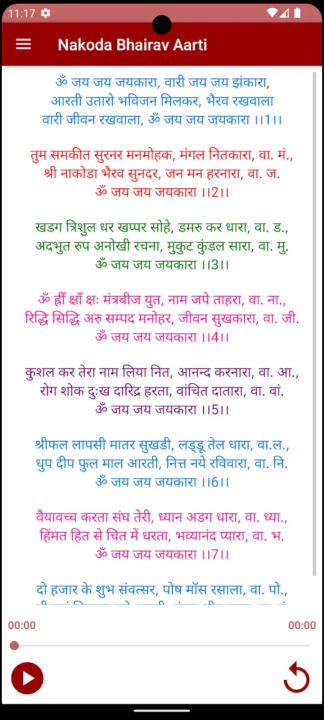 11:17
Nakoda Bhairav Aarti
ॐ जय जय जयकारा, वारी जय जय झंकारा,
आरती उतारो भविजन मिलकर, भैरव रखवाला
वारी जीवन रखवाला, ॐ जय जय जयकारा ।।1।।
तुम समकीत सुरनर मनमोहक, मंगल नितकारा, वा. मं.,
श्री नाकोडा भैरव सुनदर, जन मन हरनारा, वा. ज.
ॐ जय जय जयकारा ।।2।।
खडग त्रिशुल धर खप्पर सोहे, डमरु कर धारा, वा. ड.,
अदभुत रुप अनोखी रचना, मुकुट कुंडल सारा, वा. मु.
ॐ जय जय जयकारा ।।3।।
ॐ ह्रीँ क्षाँ क्षः मंत्रबीज युत, नाम जपे ताहरा, वा. ना.,
रिद्धि सिद्धि अरु सम्पद मनोहर, जीवन सुखकारा, वा. जी.
ॐ जय जय जयकारा ।।4।।
कुशल कर तेरा नाम लिया नित, आनन्द करनारा, वा. आ.,
रोग शोक दुःख दारिद्र हरता, वांचित दातारा, वा. वां.
ॐ जय जय जयकारा ।।5।।
श्रीफल लापसी मातर सुखडी, लड्डू तेल धारा, वा.ल.,
धुप दीप फुल माल आरती, नित्त नये रविवारा, वा. नि.
ॐ जय जय जयकारा ।।6।।
वैयावच्च करता संघ तेरी, ध्यान अडग धारा, वा. ध्या.,
हिंमत हित से चित में धरता, भव्यानंद प्यारा, वा. भ.
ॐ जय जय जयकारा ।।7।।
दो हजार के शुभ संवत्सर, पोष मॉस रसाला, वा. पो.,
00:00 00:00